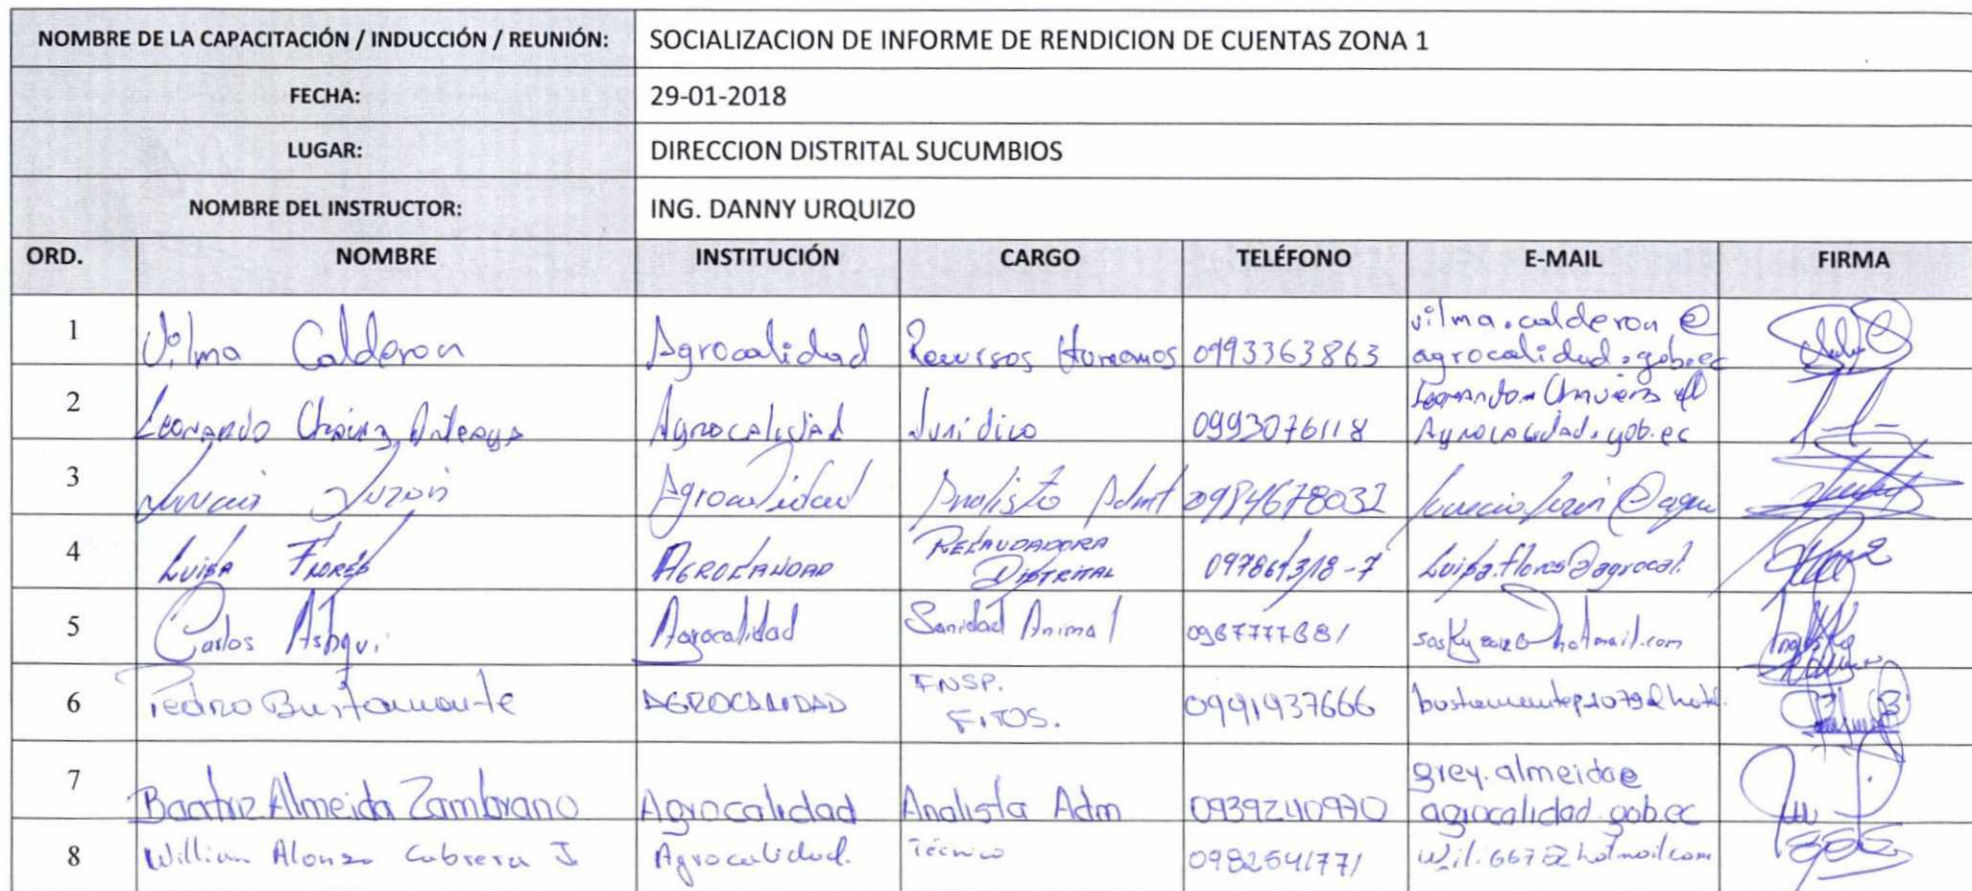 NOMBRE DE LA CAPACITACIÓN / INDUCCIÓN / REUNIÓN: SOCIALIZACION DE INFORME DE RENDICION DE CUENTAS ZONA 1
FECHA: 29-01-2018
LUGAR: DIRECCION DISTRITAL SUCUMBIOS
NOMBRE DEL INSTRUCTOR: ING. DANNY URQUIZO
ORD. NOMBRE INSTITUCIÓN CARGO TELÉFONO E-MAIL FIRMA
1 Vilma Calderon Agrocalidad Recursos Humanos 0993363863 vilma.calderon@
agrocalidad.gob.ec
2 Leonardo Chávez Agrocalidad Jurídico 0993076118
Agrocalidad.gob.ec
3 Agrocalidad Analista Admt 0984678032
4 Luisa Flores AGROCALIDAD RECAUDADORA
DISTRITAL Luisa.flores@agrocal.
5 Carlos Ashqui Agrocalidad Sanidad Animal hotmail.com
6 Pedro Bustamante AGROCALIDAD INSP.
FITOS. 0991937666 bustamantep1079@hotm.
7 Beatriz Almeida Zambrano Agrocalidad Analista Adm 0939240970 grey.almeida@
agrocalidad.gob.ec
8 William Alonzo Cabrera J Agrocalidad. Técnico 0982541771 wili.667@hotmail.com